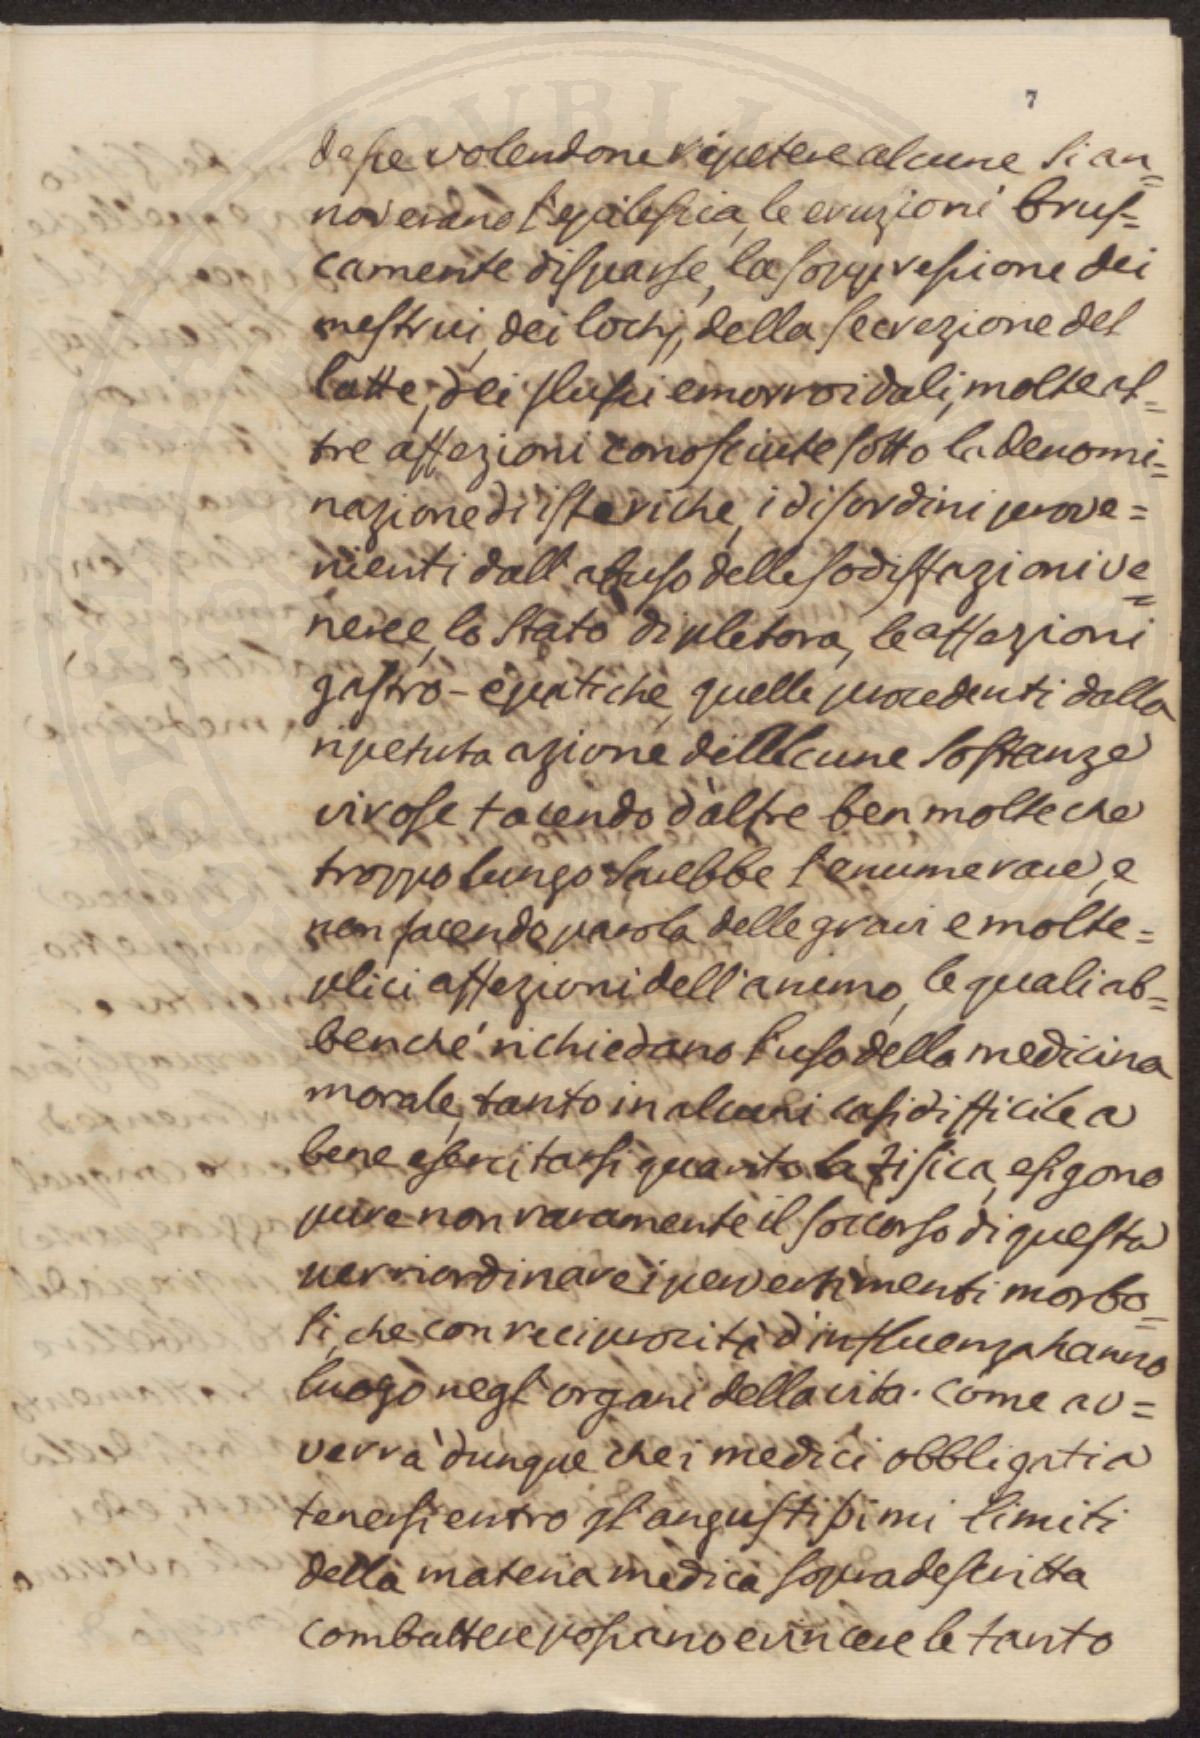 7
desse volendone ripetere alcune si an=
noverano l'epilessia, le eruzioni brus=
camente disparse, la soppressione dei
mestrui, dei lochj, della secrezione del
latte, dei flussi emorroidali, molte al=
tre affezioni conosciute sotto la denomi=
nazione di isteriche, i disordini prove=
nienti dall'abuso delle sodisffazioni ve=
neree, lo stato di pletora, le affezioni
gastro-epatiche, quelle procedenti dalla
ripetuta azione di alcune sostanze
virose tacendo d'altre ben molte che
troppo lungo sarebbe l'enumerare, e
non facendo parola delle gravi e molte=
plici affezioni dell'animo, le quali ab=
benché richiedano l'uso della medicina
morale, tanto in alcuni casi difficile a
bene esercitarsi quanto la fisica, esigono
pure non raramente il soccorso di questa
per riordinare i pervertimenti morbo=
si, che con reciprocità d'influenza hanno
luogo negl'organi della vita. Come av=
verrà dunque che i medici obbligati a
tenersi entro gl'angustissimi limiti
della materia medica sopradescritta
combattere possano e vincere le tanto